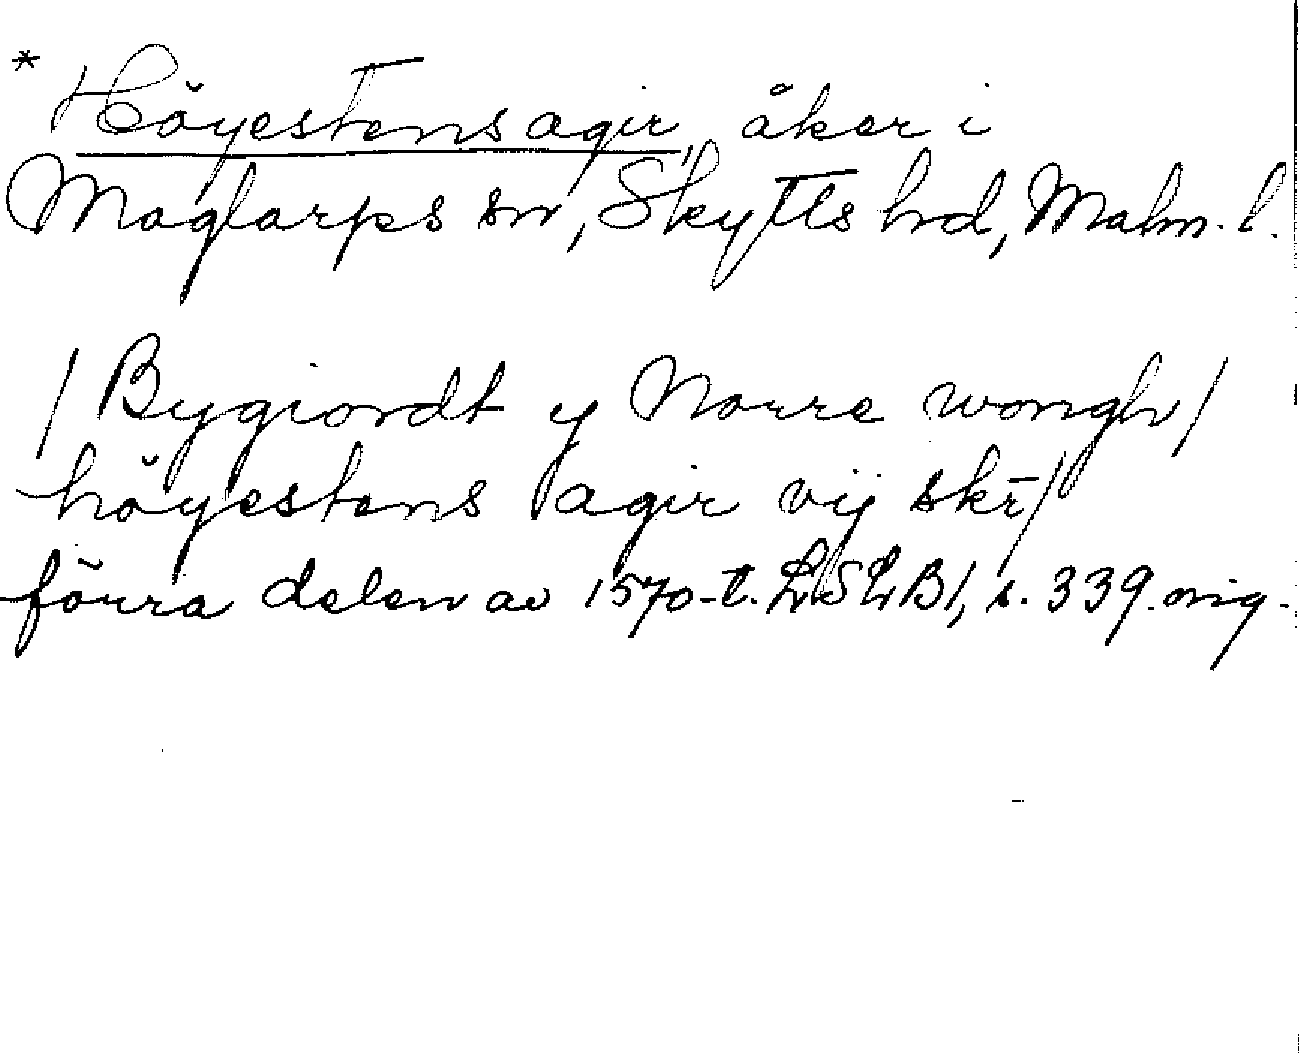 * Höyestens agir, åker i
Maglarps sn, Skytts hd, Malm. l.
/Bygiordt y Norre wongh/
höyestens agir vij skr̄/
förra delen av 1570-t. LSLB1, s. 339. orig.